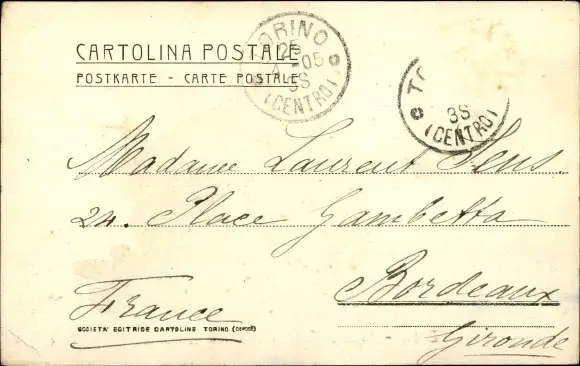 CARTOLINA POSTALE
POSTKARTE - CARTE POSTALE
TORINO
25
4-05
3S
(CENTRO)
TO
3S
(CENTRO)
Madame Laurent Sens
24. Place Gambetta
Bordeaux
France
Gironde
SOCIETA' EDITRICE CARTOLINE TORINO (DEPOSÉ)